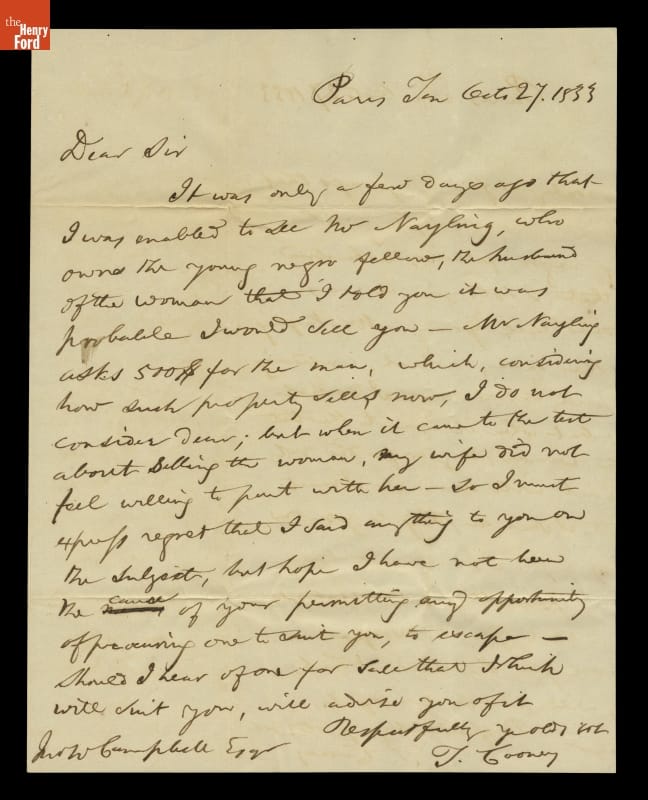 the
Henry
Ford
Paris Ten Octo 27. 1833
Dear Sir
It was only a few days ago that
I was enabled to see Mr Nayling, who
owns the young negro fellow, the husband
of the woman that I told you it was
probable I would sell you — Mr Nayling
asks 500$ for the man, which, considering
how such property sells now, I do not
consider dear; but when it came to the test
about selling the woman, my wife did not
feel willing to part with her — so I must
express regret that I said anything to you on
the subject, but hope I have not been
the cause of your permitting any opportunity
of procuring one to suit you, to escape —
should I hear of one for sale that I think
will suit you, will advise you of it
Respectfully yr obdt svt
Jno W Campbell Esqr
T. Cooney